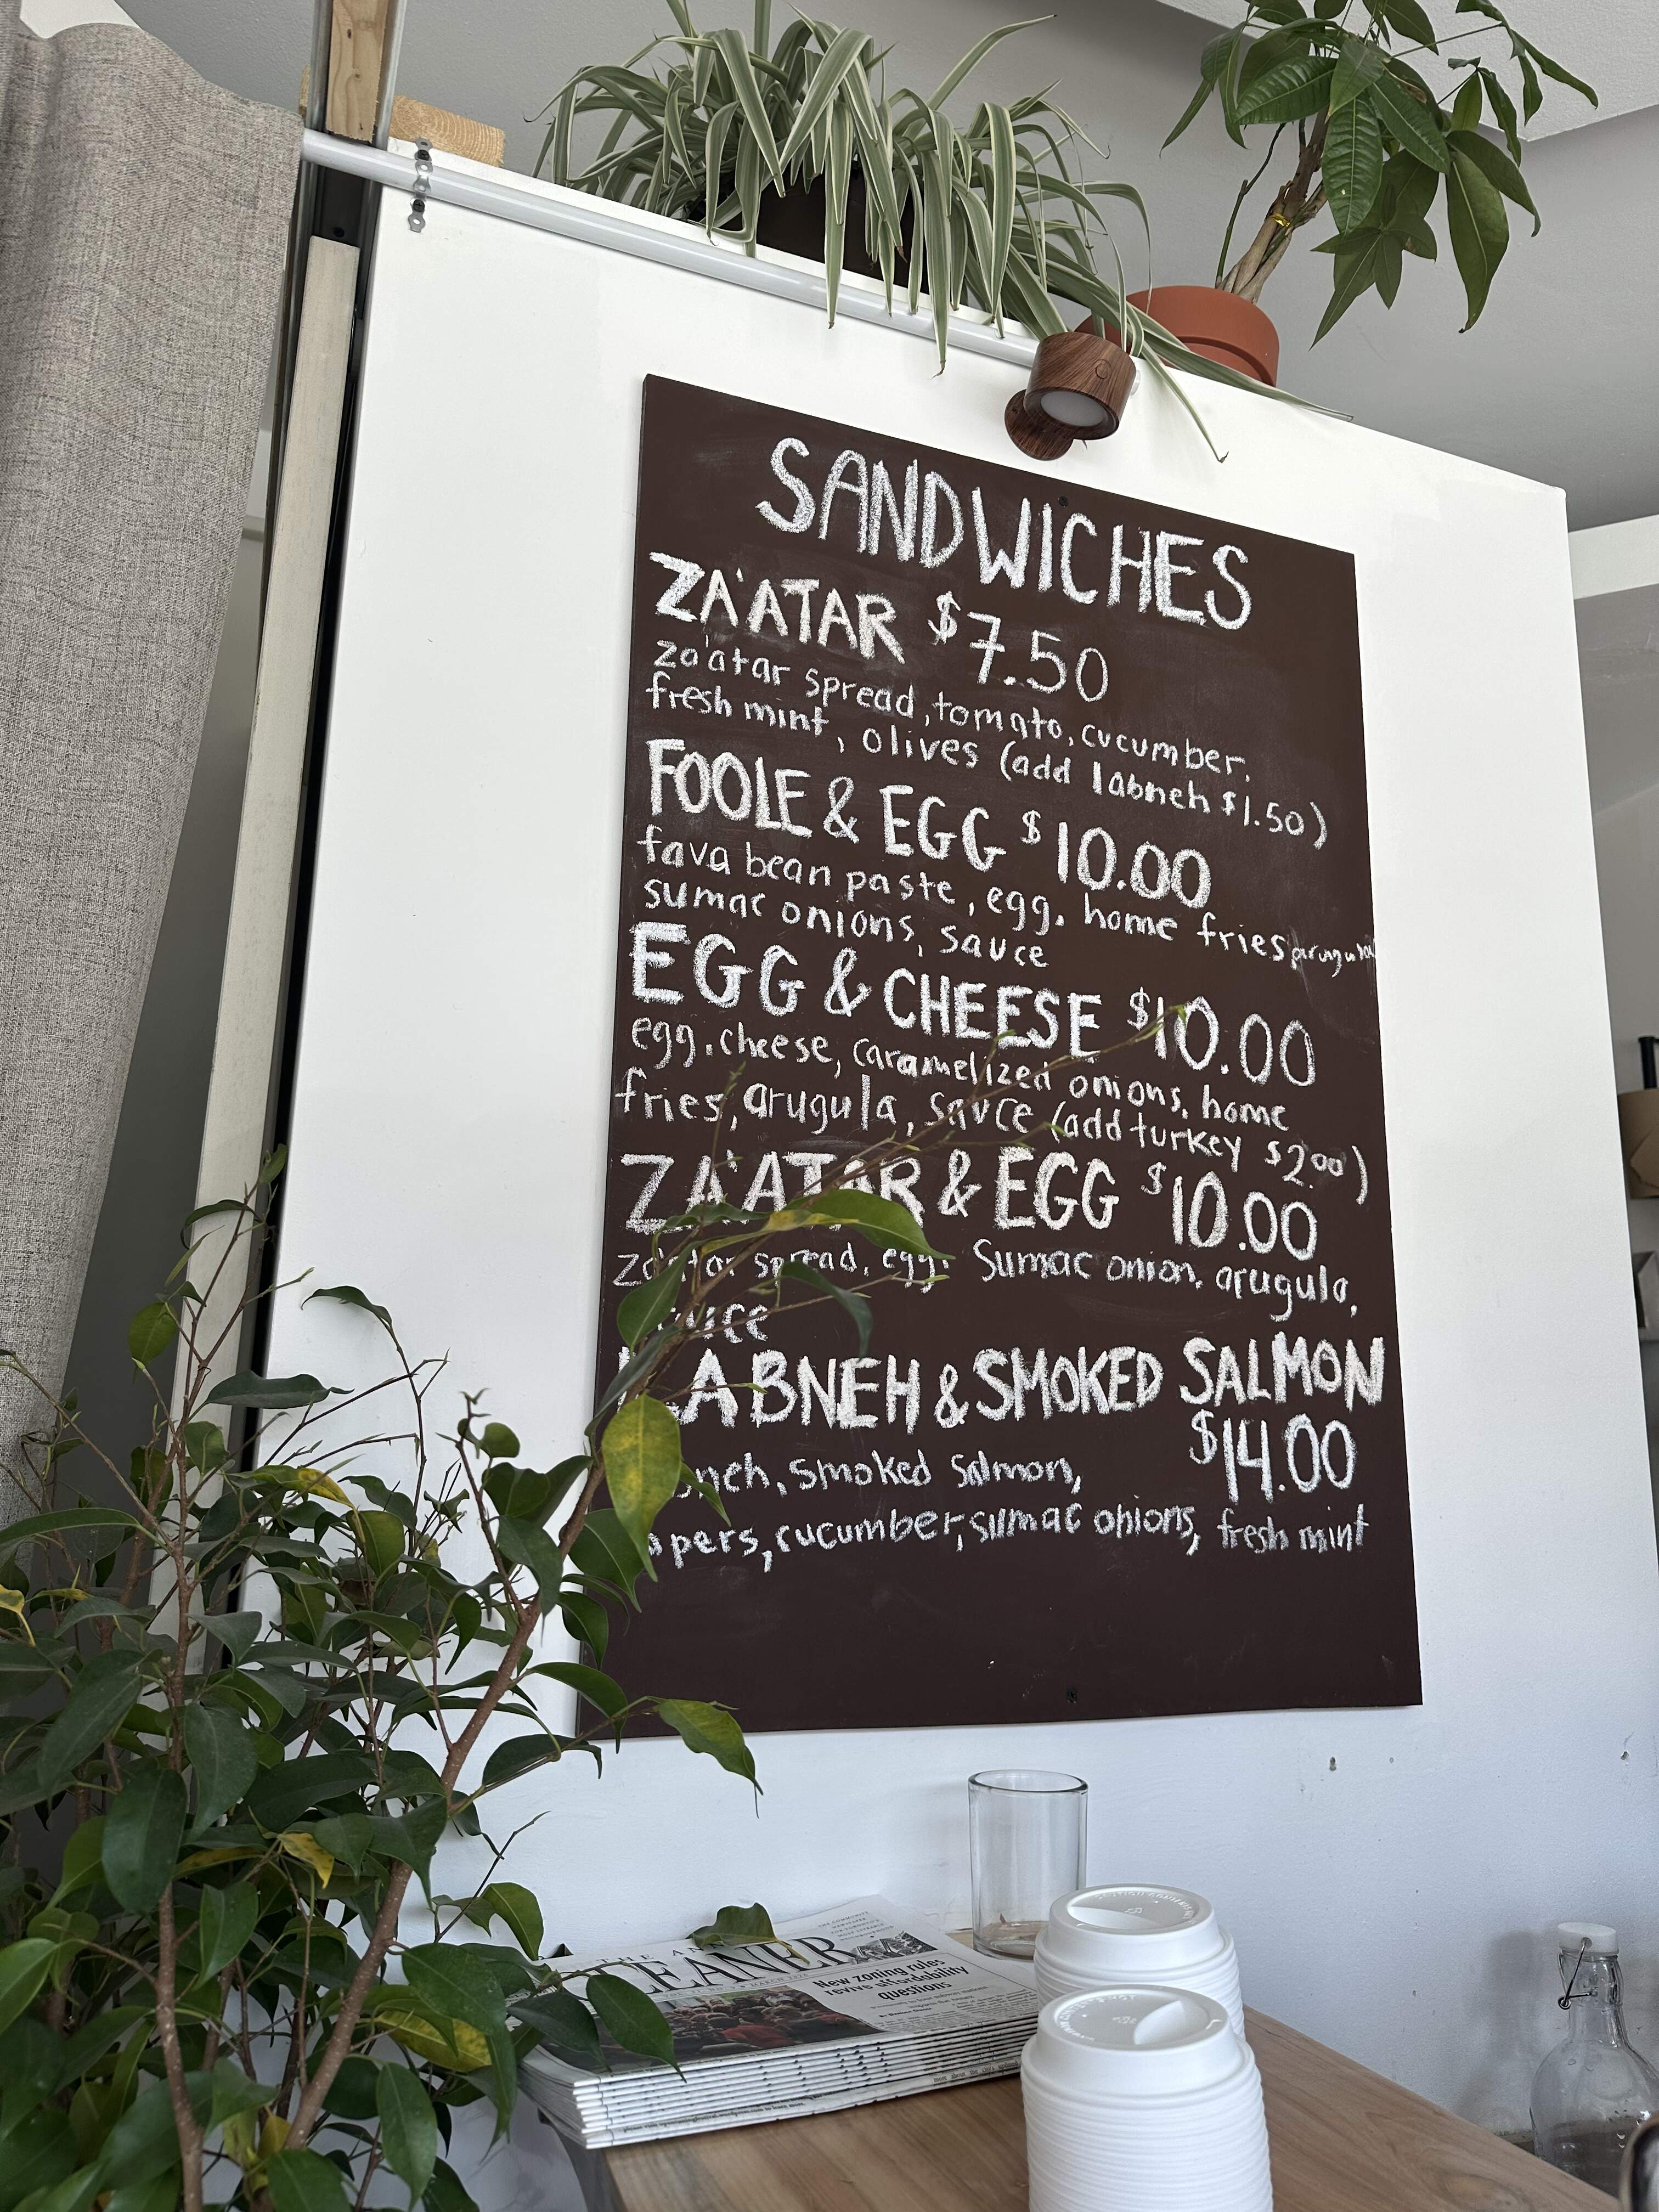 SANDWICHES
ZA'ATAR $7.50
za'atar spread, tomato, cucumber,
fresh mint, olives (add labneh $1.50)
FOOLE & EGG $10.00
fava bean paste, egg, home fries, arugula
sumac onions, sauce
EGG & CHEESE $10.00
egg, cheese, caramelized onions, home
fries, arugula, sauce (add turkey $2.00)
ZA'ATAR & EGG $10.00
za'atar spread, egg, Sumac onion, arugula,
sauce
LABNEH & SMOKED SALMON
$14.00
neh, smoked salmon,
apers, cucumber, sumac onions, fresh mint
GLEANER
New zoning rules
revive affordability
questions